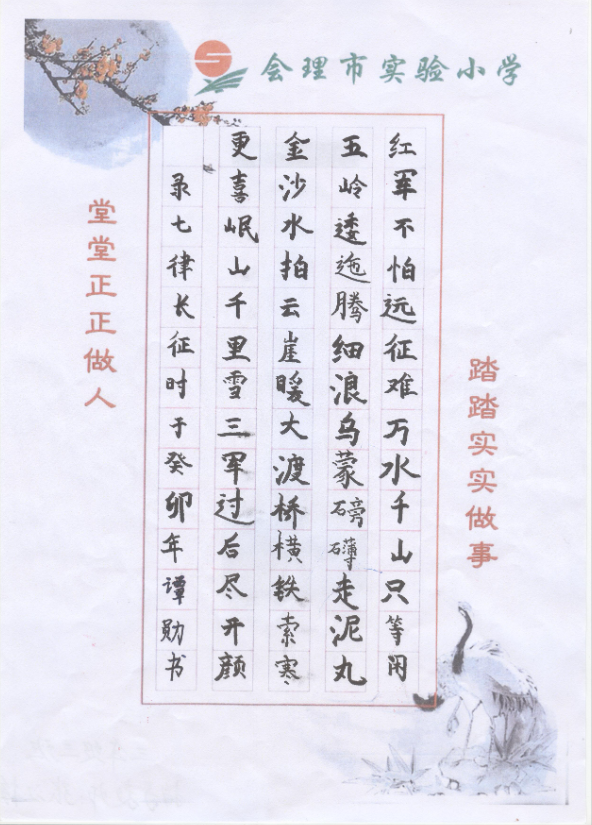 会理市实验小学
红军不怕远征难万水千山只等闲
五岭逶迤腾细浪乌蒙磅礴走泥丸
金沙水拍云崖暖大渡桥横铁索寒
更喜岷山千里雪三军过后尽开颜
录七律长征时于癸卯年谭勋书
堂堂正正做人
踏踏实实做事